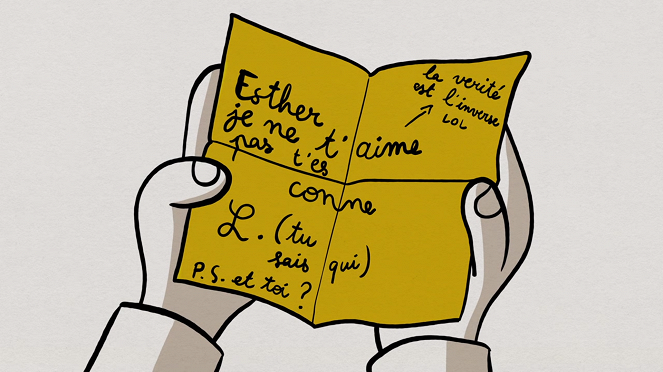 Esther
je ne t'aime
pas t'es
conne
L. (tu
sais qui)
P.S. et toi ?
la verité
est l'inverse
LOL